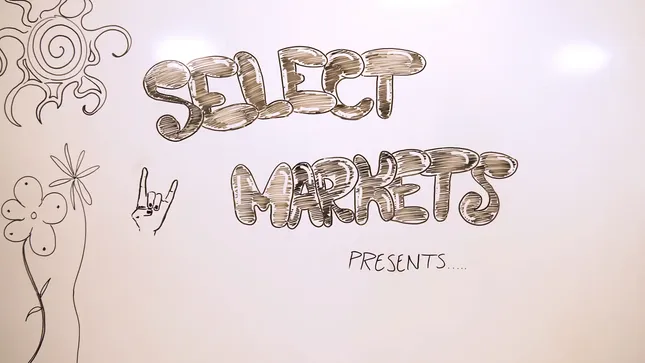 SELECT
MARKETS
PRESENTS.....